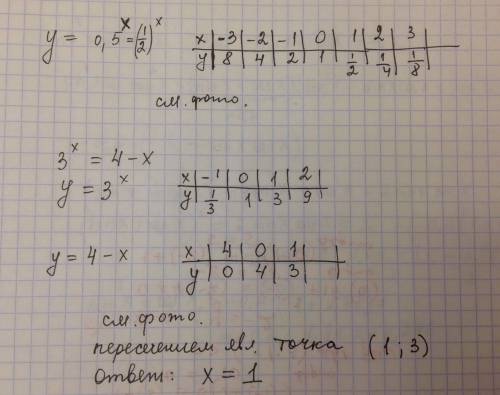 y = 0,5^x = (1/2)^x
x | -3 | -2 | -1 | 0 | 1 | 2 | 3 |
y | 8 | 4 | 2 | 1 | 1/2 | 1/4 | 1/8 |
см. фото.
3^x = 4 - x
y = 3^x
x | -1 | 0 | 1 | 2
y | 1/3 | 1 | 3 | 9
y = 4 - x
x | 4 | 0 | 1 |
y | 0 | 4 | 3 |
см. фото.
пересечением явл. точка (1; 3)
Ответ: x = 1